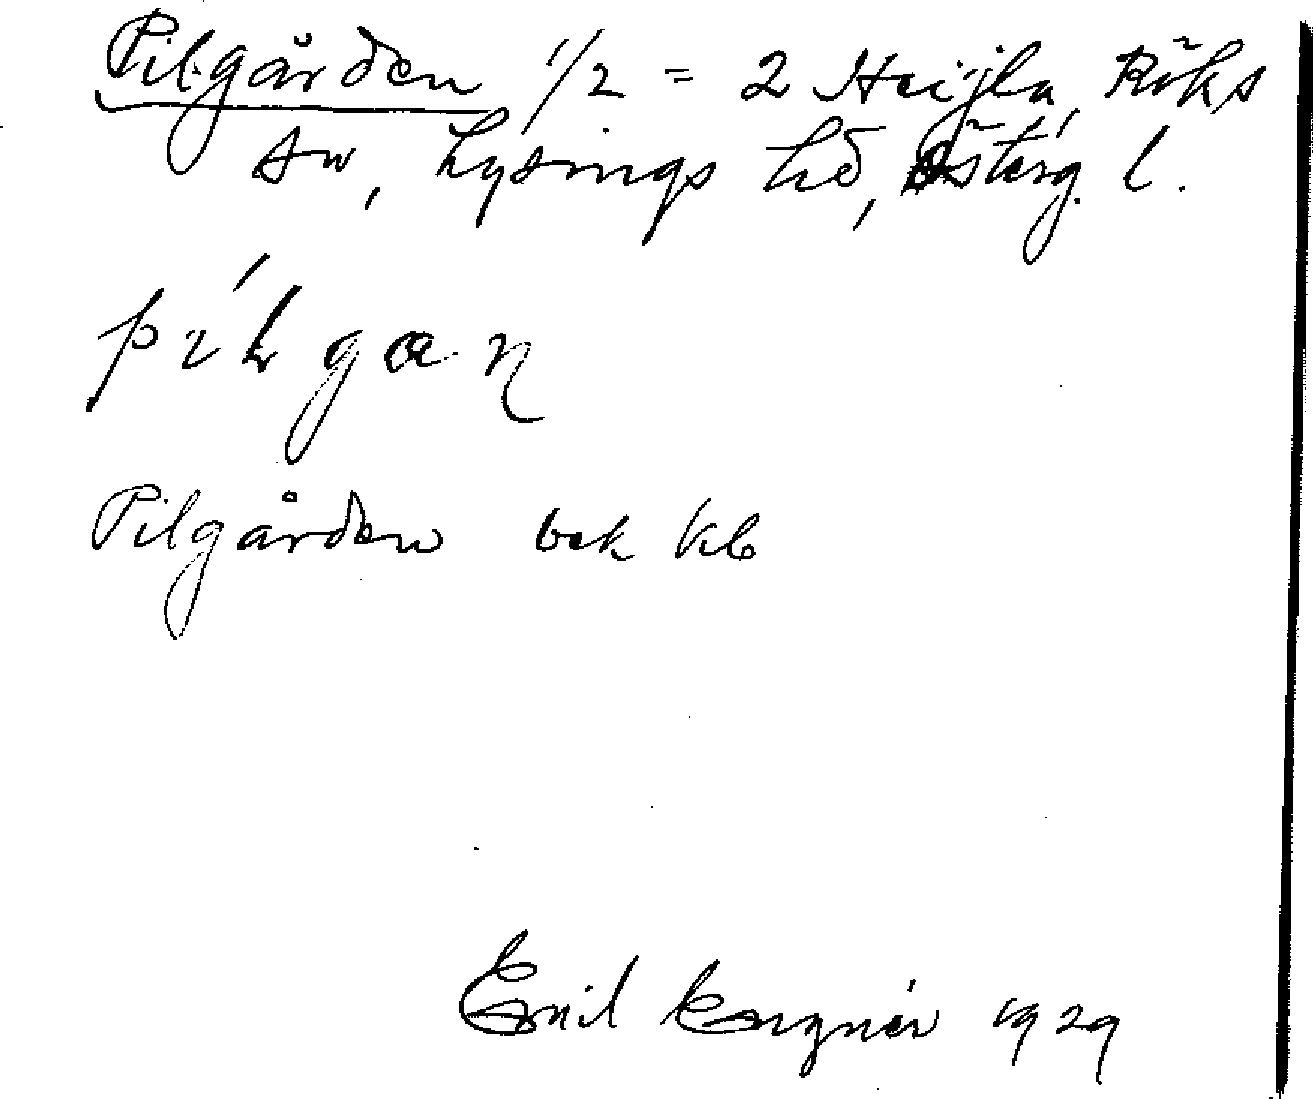 Pilgården 1/2 = 2 Heijla, Röks
sn, Lysings hd, Österg. l.
pílgan
Pilgården bek Kb
Emil Engnér 1929